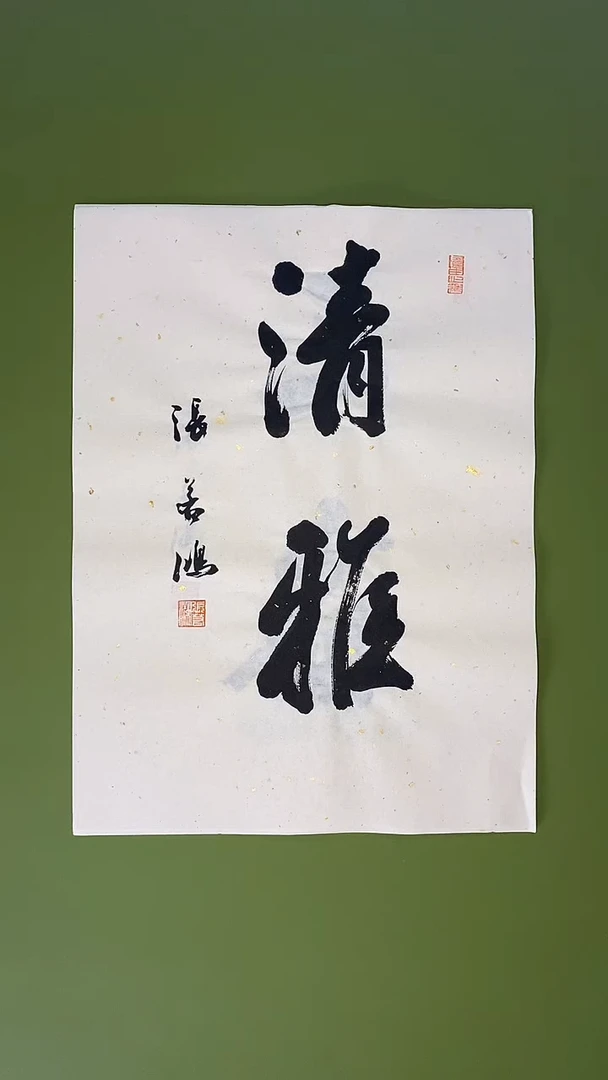 清雅
張若鴻